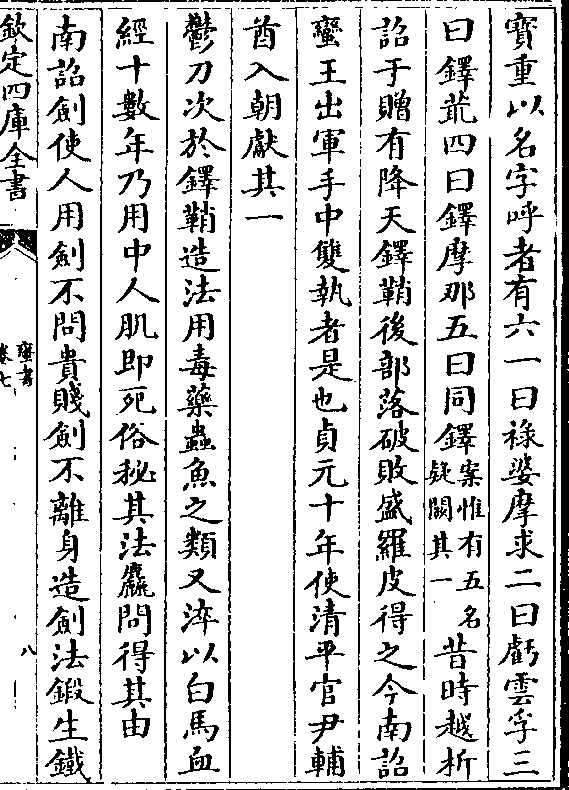 寳重以名字呼者有六一曰祿婆摩求二曰虧雲孚三
曰鐸芘四曰鐸摩那五曰同鐸案惟有五名疑闕其一昔時越析
詔于贈有降天鐸鞘後部落破敗盛羅皮得之今南詔
蠻王出軍手中雙執者是也貞元十年使清平官尹輔
酋入朝獻其一
鬱刀次於鐸鞘造法用毒藥蟲魚之類又淬以白馬血
經十數年乃用中人肌即死俗秘其法麤問得其由
南詔劍使人用劍不問貴賤劍不離身造劍法鍛生鐵
欽定四庫全書
蠻書
卷七
八